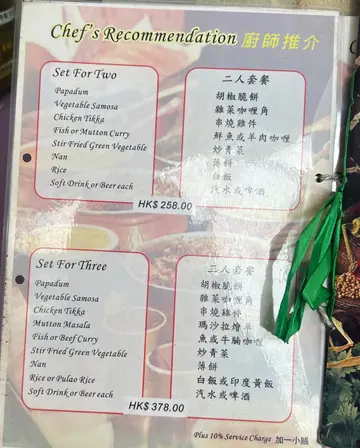 Chef's Recommendation 廚師推介
Set For Two
Papadum
Vegetable Samosa
Chicken Tikka
Fish or Mutton Curry
Stir Fried Green Vegetable
Nan
Rice
Soft Drink or Beer each
二人套餐
胡椒脆餅
雜菜咖喱角
串燒雞件
鮮魚或羊肉咖喱
炒青菜
薄餅
白飯
汽水或啤酒
HK$ 258.00
Set For Three
Papadum
Vegetable Samosa
Chicken Tikka
Mutton Masala
Fish or Beef Curry
Stir Fried Green Vegetable
Nan
Rice or Pulao Rice
Soft Drink or Beer each
三人套餐
胡椒脆餅
雜菜咖喱角
串燒雞件
瑪沙拉燴羊
魚或牛腩咖喱
炒青菜
薄餅
白飯或印度黃飯
汽水或啤酒
HK$ 378.00
Plus 10% Service Charge 加一小賬